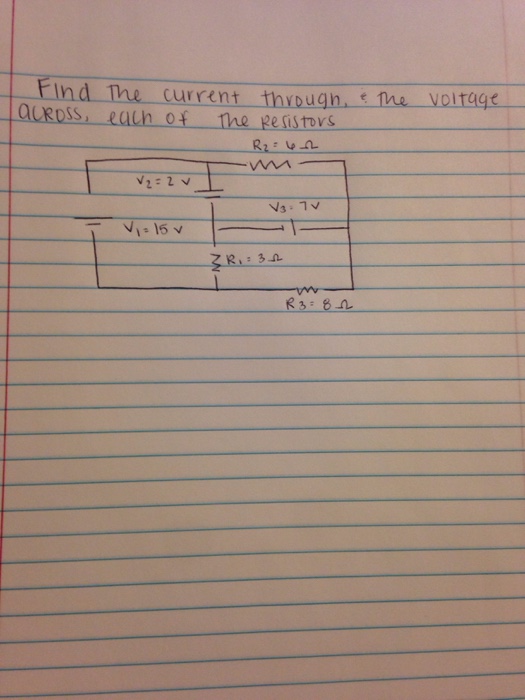 Find The current through, & The voltage
across, each of The Resistors
R2 = 6 Ω
V2 = 2 V
V3 = 7 V
V1 = 15 V
R1 = 3 Ω
R3 = 8 Ω